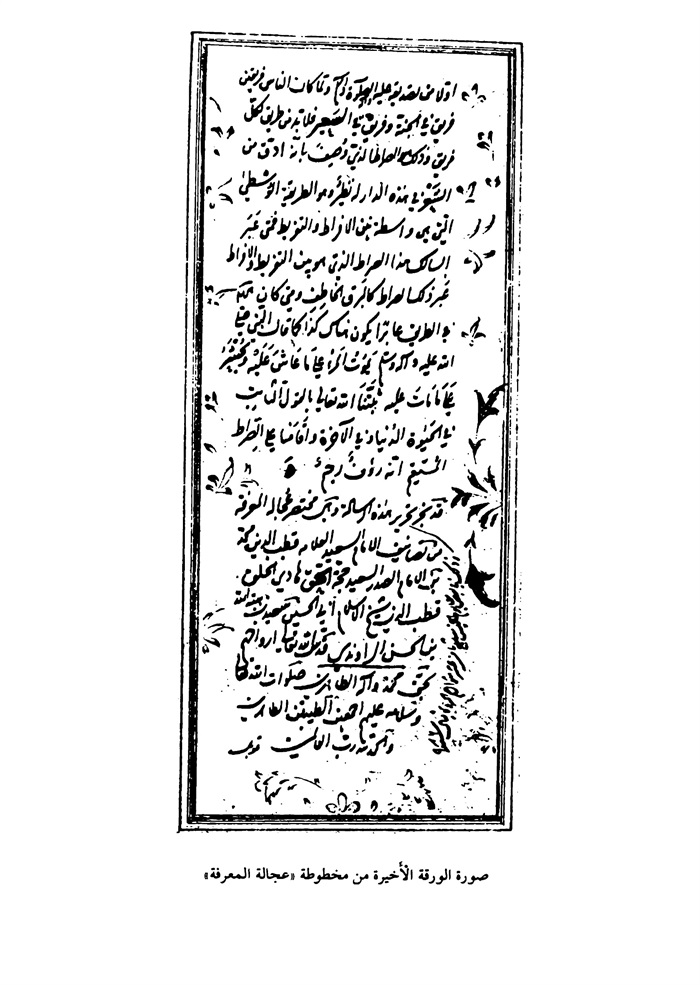 اولا من تصديقه عليه الصلوة والسلم ولما كان الناس فريقين
فريق في الجنة وفريق في السعير فلابد من طريق لكل
فريق وذلك هو الصراط الذي وُصِف بأنه ادق من
الشعر في هذه الدار له نظير وهو الطريقة الوُسْطىٰ
التي هي واسطة بين الافراط والتفريط فمن عَبَر
السالك هذا الصراط الذي هو بين التفريط والافراط
عبر ذلك الصراط كالبرق الخاطف ومن كان
في الطريق عاثرا يكون هناك كذا كما قال النبي صلى
الله عليه وآله وسلم يموت المرء على ما عَاشَ عَلَيْهِ ويُحْشَرُ
عَلَى مَا مَاتَ عليه ثَبَّتَنَا الله تعالى بالقول الثابت
في الحيوة الدنيا وفي الآخرة واقامنا على الصراط
المستقيم انه رؤفٌ رحيم
قد نجز تحرير هذه الرسالة وهي مختصر عجالة المعرفة
من تصانيف الامام السعيد العلامه قطب الدين محمد
بن الامام الصدر السعيد حجة الحق هادي الخلق
قطب الدين شيخ الاسلام أبي الحسين سعيد بن هبة الله
بن الحسن الراوندي قدس الله تعالى ارواحهم
بحق محمد وآله الطاهرين صلوات الله تعالى
وسلامه عليهم اجمعين الطيبين الطاهرين
والحمد لله رب العالمين
صورة الورقة الْأَخيرة من مخطوطة «عجالة المعرفة»